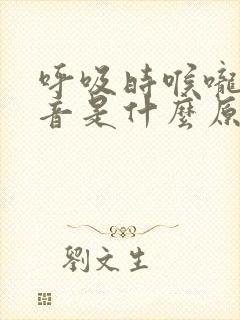 呼吸时喉嚨
音是什麼原
劉文生